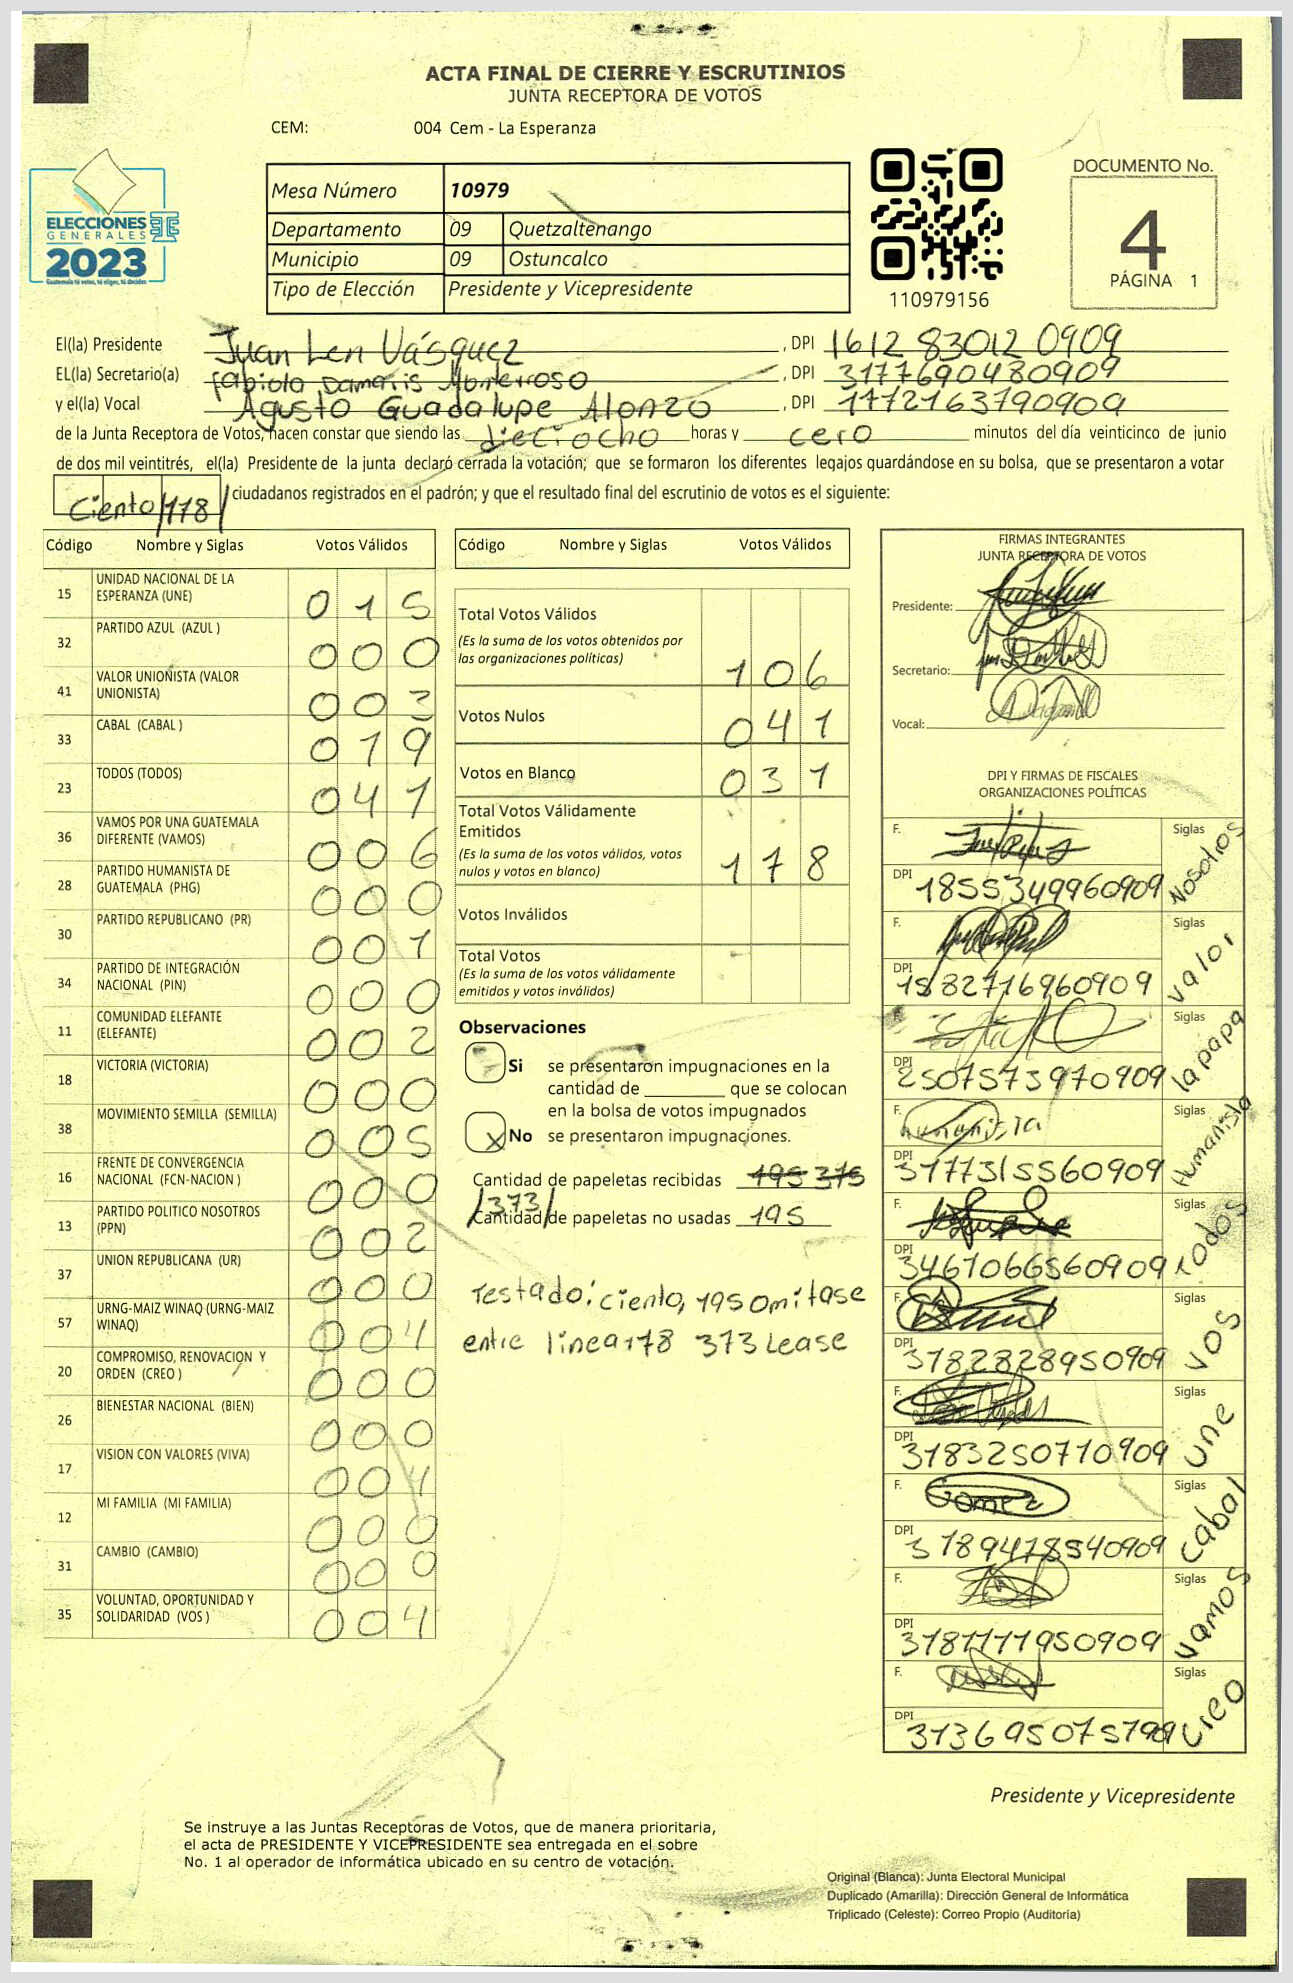 ACTA FINAL DE CIERRE Y ESCRUTINIOS
JUNTA RECEPTORA DE VOTOS
CEM: 004 Cem - La Esperanza
ELECCIONES
GENERALES
2023
Guatemala tú votas, tú eliges, tú decides
Mesa Número 10979
Departamento 09 Quetzaltenango
Municipio 09 Ostuncalco
Tipo de Elección Presidente y Vicepresidente
110979156
DOCUMENTO No.
4
PÁGINA 1
El(la) Presidente Juan Len Vásquez , DPI 1612 83012 0909
EL(la) Secretario(a) Fabiola Damaris Monterroso , DPI 3177690480909
y el(la) Vocal Agusto Guadalupe Alonzo , DPI 1772163790909
de la Junta Receptora de Votos, hacen constar que siendo las dieciocho horas y cero minutos del día veinticinco de junio
de dos mil veintitrés, el(la) Presidente de la junta declaró cerrada la votación; que se formaron los diferentes legajos guardándose en su bolsa, que se presentaron a votar
Ciento/178/ ciudadanos registrados en el padrón; y que el resultado final del escrutinio de votos es el siguiente:
Código Nombre y Siglas Votos Válidos
15 UNIDAD NACIONAL DE LA ESPERANZA (UNE) 015
32 PARTIDO AZUL (AZUL ) 000
41 VALOR UNIONISTA (VALOR UNIONISTA) 003
33 CABAL (CABAL ) 019
23 TODOS (TODOS) 041
36 VAMOS POR UNA GUATEMALA DIFERENTE (VAMOS) 006
28 PARTIDO HUMANISTA DE GUATEMALA (PHG) 000
30 PARTIDO REPUBLICANO (PR) 001
34 PARTIDO DE INTEGRACIÓN NACIONAL (PIN) 000
11 COMUNIDAD ELEFANTE (ELEFANTE) 002
18 VICTORIA (VICTORIA) 000
38 MOVIMIENTO SEMILLA (SEMILLA) 005
16 FRENTE DE CONVERGENCIA NACIONAL (FCN-NACION ) 000
13 PARTIDO POLITICO NOSOTROS (PPN) 002
37 UNION REPUBLICANA (UR) 000
57 URNG-MAIZ WINAQ (URNG-MAIZ WINAQ) 004
20 COMPROMISO, RENOVACION Y ORDEN (CREO ) 000
26 BIENESTAR NACIONAL (BIEN) 000
17 VISION CON VALORES (VIVA) 004
12 MI FAMILIA (MI FAMILIA) 000
31 CAMBIO (CAMBIO) 000
35 VOLUNTAD, OPORTUNIDAD Y SOLIDARIDAD (VOS ) 004
Código Nombre y Siglas Votos Válidos
Total Votos Válidos
(Es la suma de los votos obtenidos por
las organizaciones políticas) 106
Votos Nulos 041
Votos en Blanco 031
Total Votos Válidamente
Emitidos
(Es la suma de los votos válidos, votos
nulos y votos en blanco) 178
Votos Inválidos
Total Votos
(Es la suma de los votos válidamente
emitidos y votos inválidos)
Observaciones
Si se presentaron impugnaciones en la
cantidad de ________ que se colocan
en la bolsa de votos impugnados
X No se presentaron impugnaciones.
Cantidad de papeletas recibidas 195 375
/373/
Cantidad de papeletas no usadas 195
Testado: ciento, 195 omitase
entre linea 178 373 Lease
FIRMAS INTEGRANTES
JUNTA RECEPTORA DE VOTOS
Presidente:
Secretario:
Vocal:
DPI Y FIRMAS DE FISCALES
ORGANIZACIONES POLÍTICAS
F. Siglas Nosotros
DPI 1855349960909
F. Siglas Valor
DPI 1582716960909
F. Siglas la papa
DPI 2507573970909
F. Humanista Siglas Humanista
DPI 3177315560909
F. Siglas todos
DPI 3461066560909
F. Siglas VOS
DPI 3182828950909
F. Siglas une
DPI 3183250710909
F. Gomez Siglas Cabal
DPI 3189478540909
F. Siglas vamos
DPI 3181111950909
F. Siglas creo
DPI
Presidente y Vicepresidente
Se instruye a las Juntas Receptoras de Votos, que de manera prioritaria,
el acta de PRESIDENTE Y VICEPRESIDENTE sea entregada en el sobre
No. 1 al operador de informática ubicado en su centro de votación.
Original (Blanca): Junta Electoral Municipal
Duplicado (Amarilla): Dirección General de Informática
Triplicado (Celeste): Correo Propio (Auditoría)